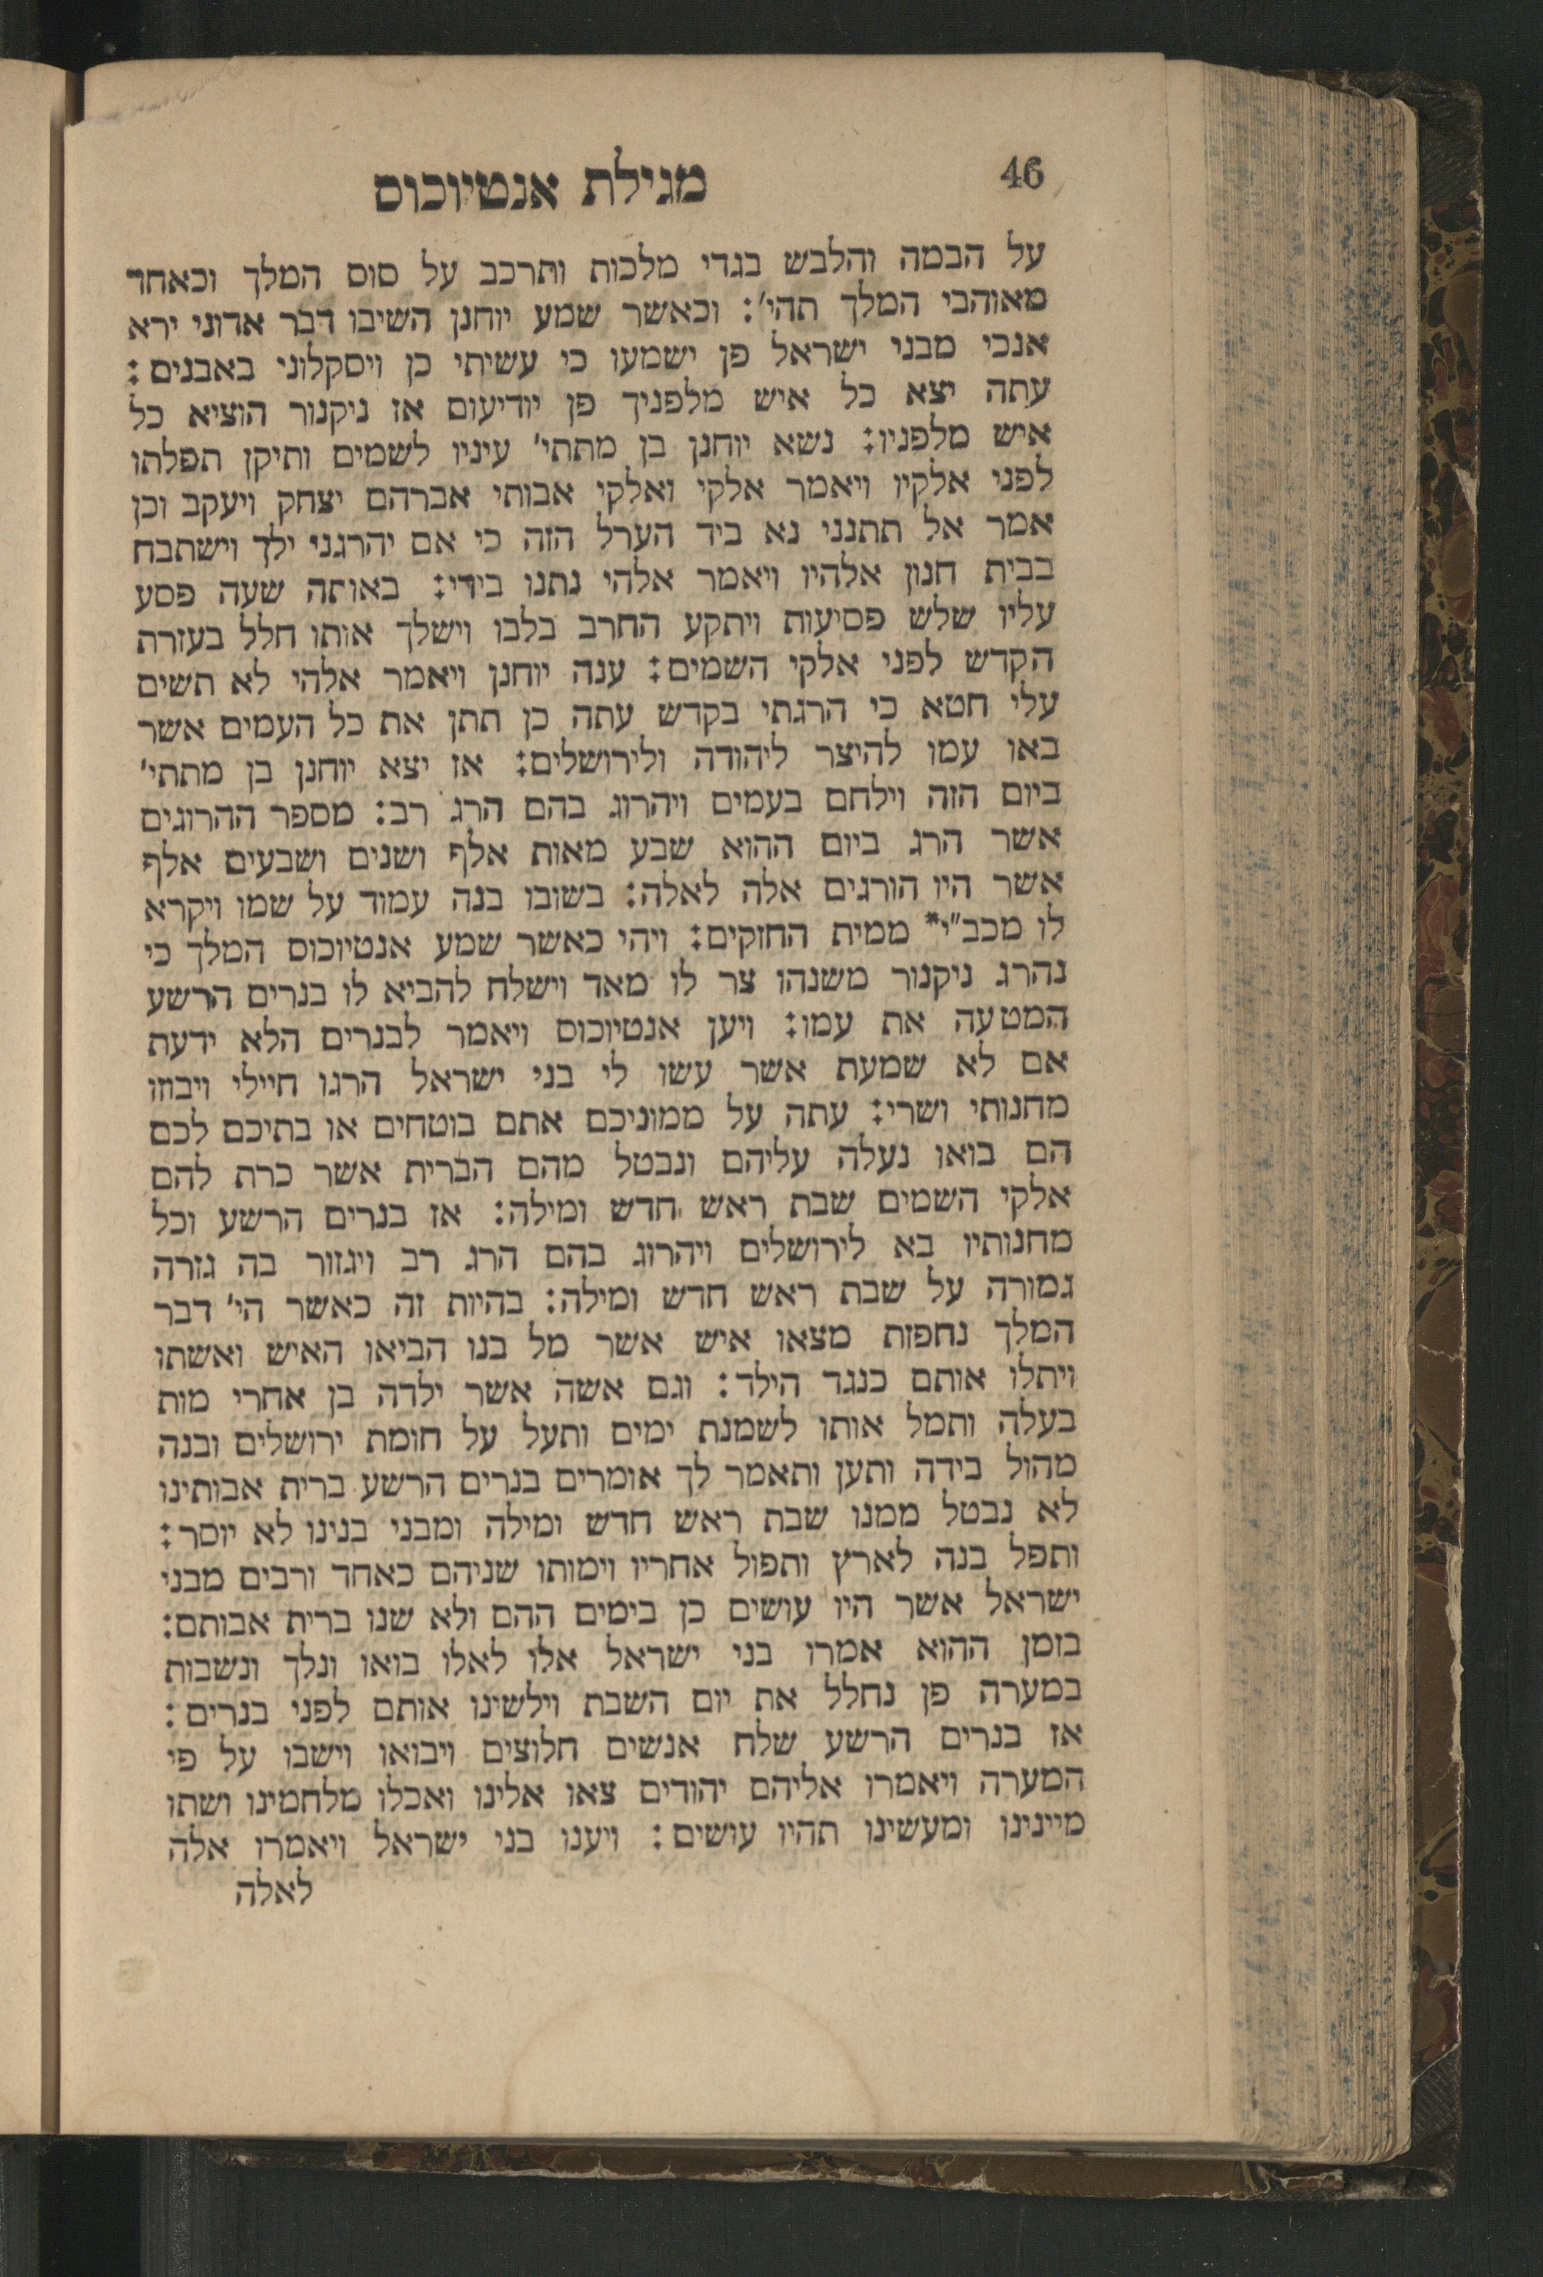 46
מגילת אנטיוכוס
על הבמה והלבש בגדי מלכות ותרכב על סוס המלך וכאחד
מאוהבי המלך תהי׳: וכאשר שמע יוחנן השיבו דבר אדוני ירא
אנכי מבני ישראל פן ישמעו כי עשיתי כן ויסקלוני באבנים:
עתה יצא כל איש מלפניך פן יודיעום אז ניקנור הוציא כל
איש מלפניו: נשא יוחנן בן מתתי׳ עיניו לשמים ותיקן תפלתו
לפני אלקיו ויאמר אלקי ואלקי אבותי אברהם יצחק ויעקב וכן
אמר אל תתנני נא ביד הערל הזה כי אם יהרגני ילך וישתבח
בבית חנון אלהיו ויאמר אלהי נתנו בידי: באותה שעה פסע
עליו שלש פסיעות ויתקע החרב בלבו וישלך אותו חלל בעזרת
הקדש לפני אלקי השמים: ענה יוחנן ויאמר אלהי לא תשים
עלי חטא כי הרגתי בקדש עתה כן תתן את כל העמים אשר
באו עמו להיצר ליהודה ולירושלים: אז יצא יוחנן בן מתתי׳
ביום הזה וילחם בעמים ויהרוג בהם הרג רב: מספר ההרוגים
אשר הרג ביום ההוא שבע מאות אלף ושנים ושבעים אלף
אשר היו הורגים אלה לאלה: בשובו בנה עמוד על שמו ויקרא
לו מכב״י* ממית החזקים: ויהי כאשר שמע אנטיוכוס המלך כי
נהרג ניקנור משנהו צר לו מאד וישלח להביא לו בגרים הרשע
המטעה את עמו: ויען אנטיוכוס ויאמר לבגרים הלא ידעת
אם לא שמעת אשר עשו לי בני ישראל הרגו חיילי ויבוזו
מחנותי ושרי: עתה על ממוניכם אתם בוטחים או בתיכם לכם
הם בואו נעלה עליהם ונבטל מהם הברית אשר כרת להם
אלקי השמים שבת ראש חדש ומילה: אז בגרים הרשע וכל
מחנותיו בא לירושלים ויהרוג בהם הרג רב ויגזור בה גזרה
גמורה על שבת ראש חדש ומילה: בהיות זה כאשר הי׳ דבר
המלך נחפזת מצאו איש אשר מל בנו הביאו האיש ואשתו
ויתלו אותם כנגד הילד: וגם אשה אשר ילדה בן אחרי מות
בעלה ותמל אותו לשמנת ימים ותעל על חומת ירושלים ובנה
מהול בידה ותען ותאמר לך אומרים בגרים הרשע ברית אבותינו
לא נבטל ממנו שבת ראש חדש ומילה ומבני בנינו לא יוסר:
ותפל בנה לארץ ותפול אחריו וימותו שניהם כאחד ורבים מבני
ישראל אשר היו עושים כן בימים ההם ולא שנו ברית אבותם:
בזמן ההוא אמרו בני ישראל אלו לאלו בואו ונלך ונשבות
במערה פן נחלל את יום השבת וילשינו אותם לפני בגרים:
אז בגרים הרשע שלח אנשים חלוצים ויבואו וישבו על פי
המערה ויאמרו אליהם יהודים צאו אלינו ואכלו מלחמינו ושתו
מיינינו ומעשינו תהיו עושים: ויענו בני ישראל ויאמרו אלה
לאלה